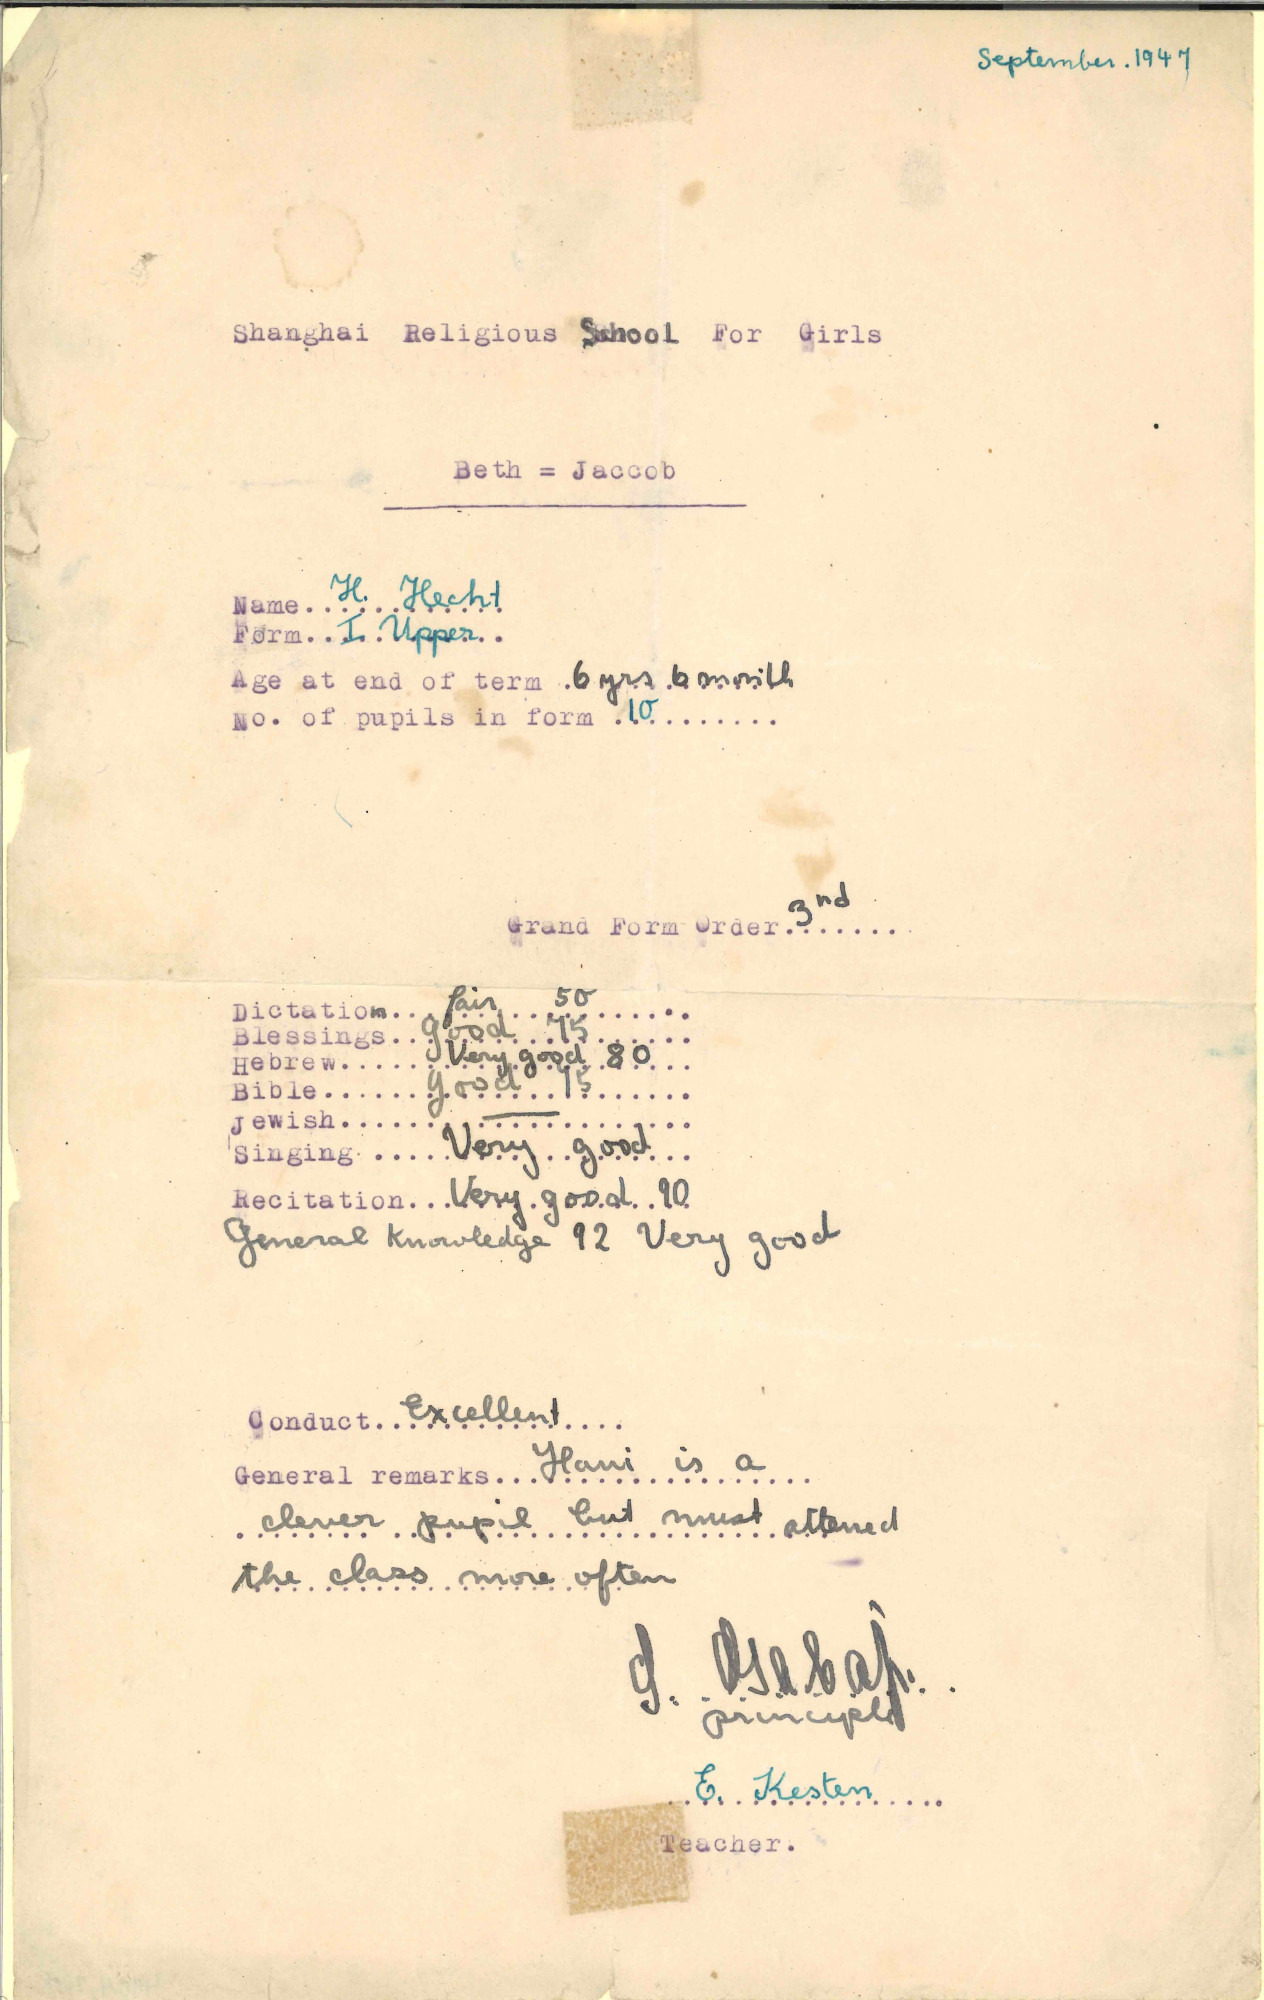 September. 1947
Shanghai Religious School For Girls
Beth = Jaccob
Name.. H. Hecht
Form.. I. Upper..
Age at end of term .6 yrs 6 month
No. of pupils in form .10..........
Grand Form Order. 3nd .......
Dictation... fair 50 ......
Blessings.. good 75 ......
Hebrew..... Very good 80 ...
Bible...... good 75 .......
Jewish..... — .......
Singing .... Very good ...
Recitation... Very good 90
General Knowledge 92 Very good
Conduct.. Excellent ....
General remarks... Hani is a
clever pupil but must attened
the class more often
principle
E. Kesten
Teacher.